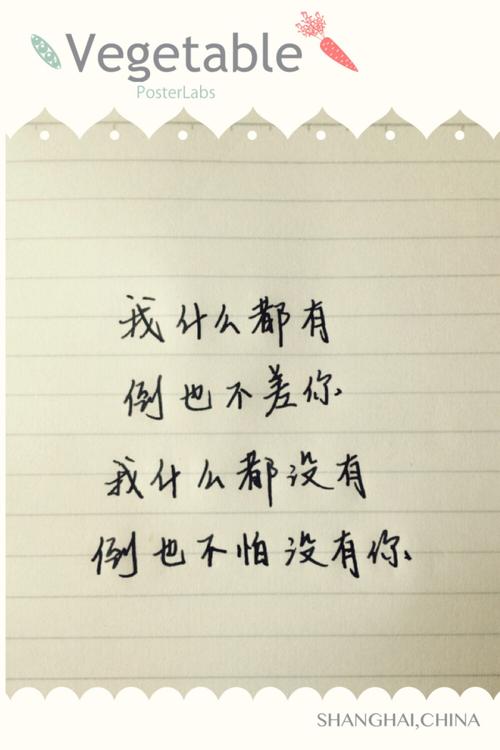 Vegetable
PosterLabs
我什么都有
倒也不差你.
我什么都没有
倒也不怕没有你.
SHANGHAI,CHINA